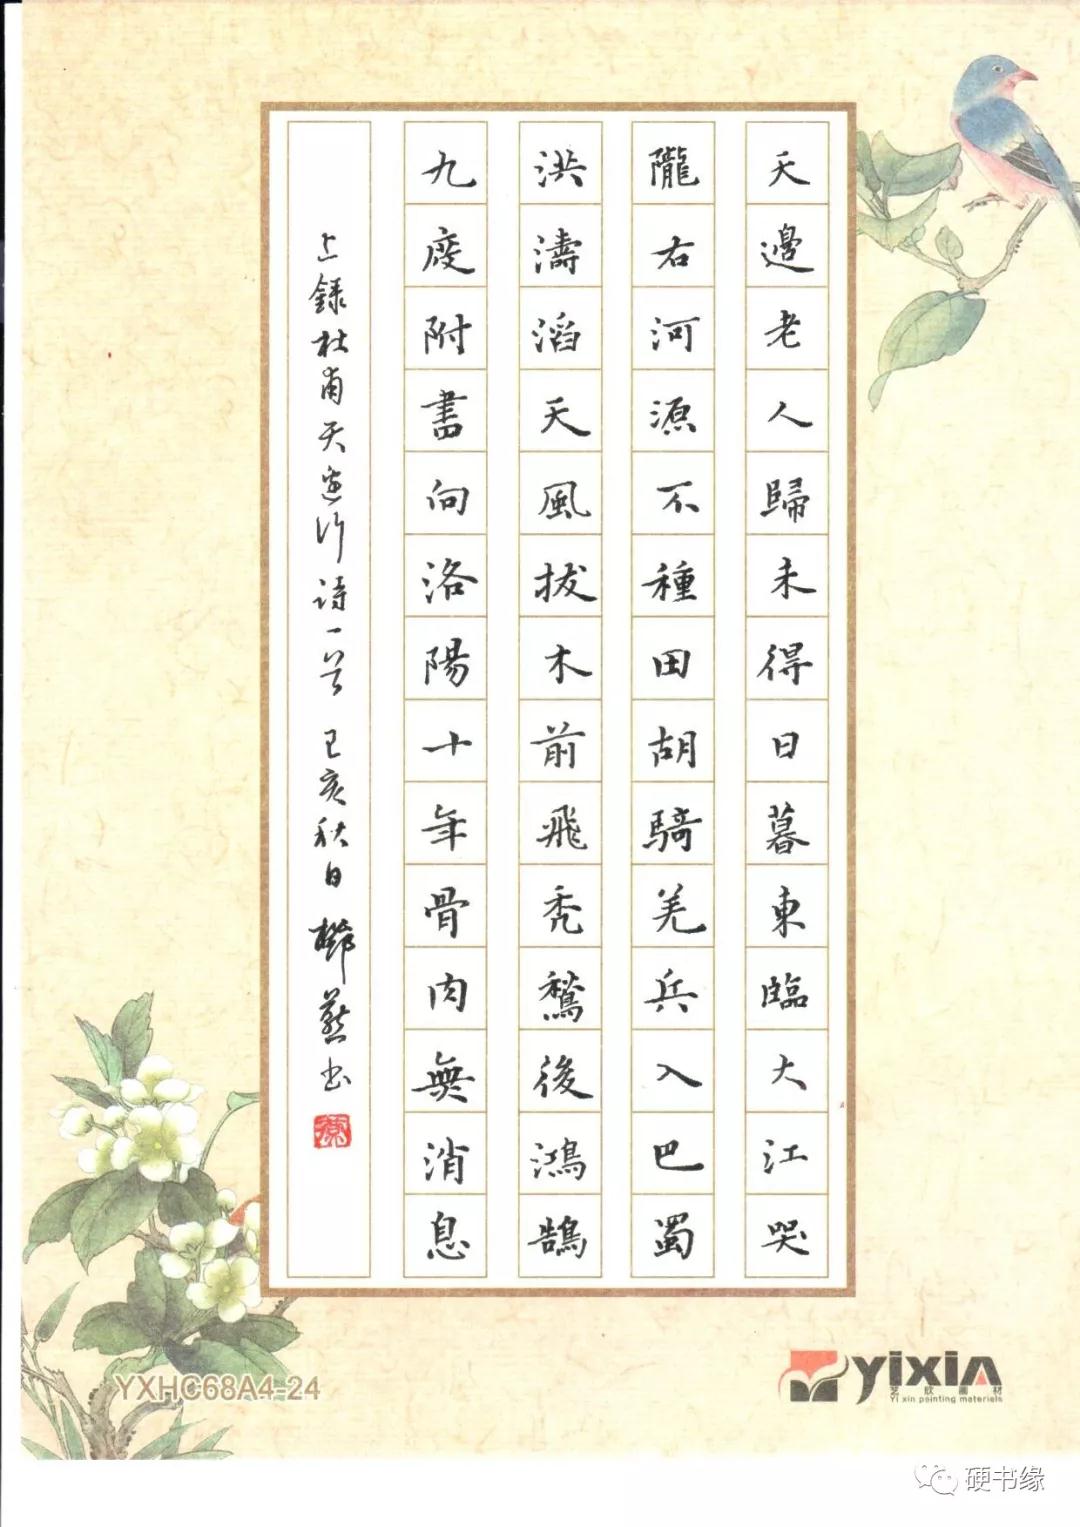 天邊老人歸未得日暮東臨大江哭
隴右河源不種田胡騎羌兵入巴蜀
洪濤滔天風拔木前飛禿鶖後鴻鵠
九度附書向洛陽十年骨肉無消息
上錄杜甫天边行诗一首 己亥秋日 燕书
YXHC68A4-24
yixin
艺欣画材
Yi xin painting materials
硬书缘